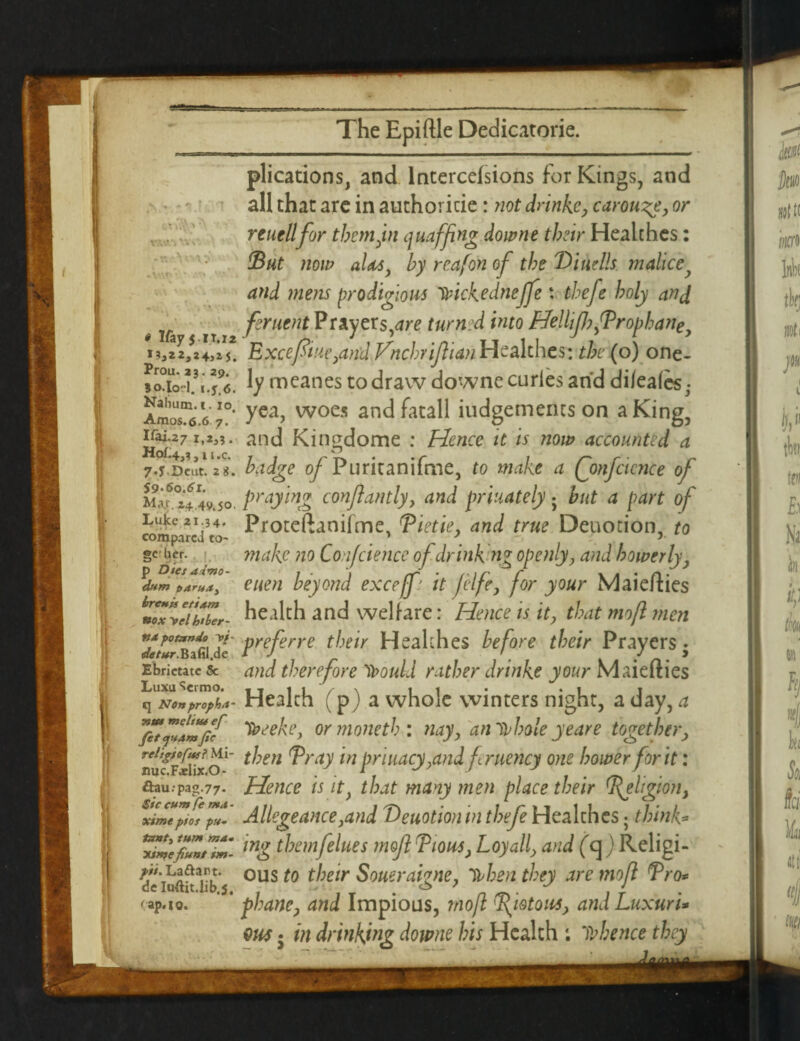 The Epiſtle Dedicatorie.
plications, and Interceſsions for Kings, and
all that are in authoritie : not drinke, carouze, or
reuell for them, in quaffing downe their Healthes :
But now alas, by reaſon of the Diuells malice,
and mens prodigious wickedneſſe : theſe holy and
feruent Prayers, are turned into Helliſh, Prophane,
Exceſsiue, and Vnchriſtian Healthes: the (o) one-
ly meanes to draw downe curſes and diſeaſes ;
yea, woes and fatall iudgements on a King,
and Kingdome : Hence it is now accounted a
badge of Puritaniſme, to make a Conſcience of
praying conſtantly, and priuately ; but a part of
Proteſtaniſme, Pietie, and true Deuotion, to
make no Conſcience of drinking openly, and howerly,
euen beyond exceſſe it ſelfe, for your Maieſties
health and welfare : Hence is it, that moſt men
preferre their Healthes before their Prayers ;
and therefore would rather drinke your Maieſties
Health (p) a whole winters night, a day, a
weeke, or moneth : nay, an whole yeare together,
then Pray in priuacy, and feruency one hower for it :
Hence is it, that many men place their Religion,
Allegeance, and Deuotion in theſe Healthes ; think-
ing themſelues moſt Pious, Loyall, and (q) Religi-
ous to their Soueraigne, when they are moſt Pro-
phane, and Impious, moſt Riotous, and Luxuri-
ous ; in drinking downe his Health : whence they
o Iſay 5.11.12
13,22,24,25.
Prou. 23. 29.
30.Ioel. 1.5.6.
Nahum.1.10.
Amos.6.6 7.
Iſai.27 1,2,3.
Hoſ.4,3,11.c.
7.5.Deut. 28.
59.60.61.
Mat. 24.49.50.
Luke 21.34.
compared to-
gether.
p Dies admo-
dum parua,
breuis etiam
nox vel hiber-
na potando vi-
detur.Baſil.de
Ebrietate &
Luxu Sermo.
q Non propha-
nus melius eſ-
ſet quàm ſic
religioſus? Mi-
nuc.Fælix.O-
ctau: pag.77.
Sic cum ſe ma-
xime pios pu-
tant, tum ma-
xime fiunt im-
pii. Lactant.
de Iuſtit.lib.5.
cap.10.